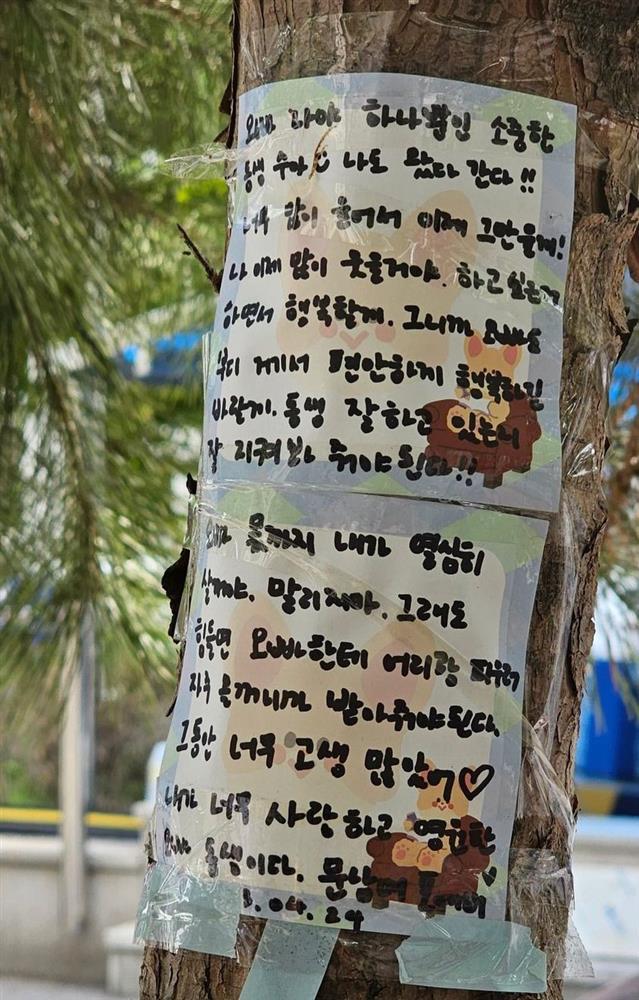 오빠 나야 하나뿐인 소중한
동생 수아 나도 왔다 간다!!
너무 많이 울어서 이제 그만울게!
나 이제 많이 웃을거야. 하고싶은거
하면서 행복할게. 그니까 오빠도
부디 거기서 편안하게 행복하길
바랄게. 동생 잘하고 있는지
잘 지켜봐 줘야된다!!
오빠 몫까지 내가 열심히
살게야. 말리지마. 그래도
힘들면 오빠한테 어리광 피우러
자주 올꺼니까 받아줘야된다.
그동안 너무 고생 많았어♡
내가 너무 사랑하고 영원한
오빠 동생이다.
.04.24